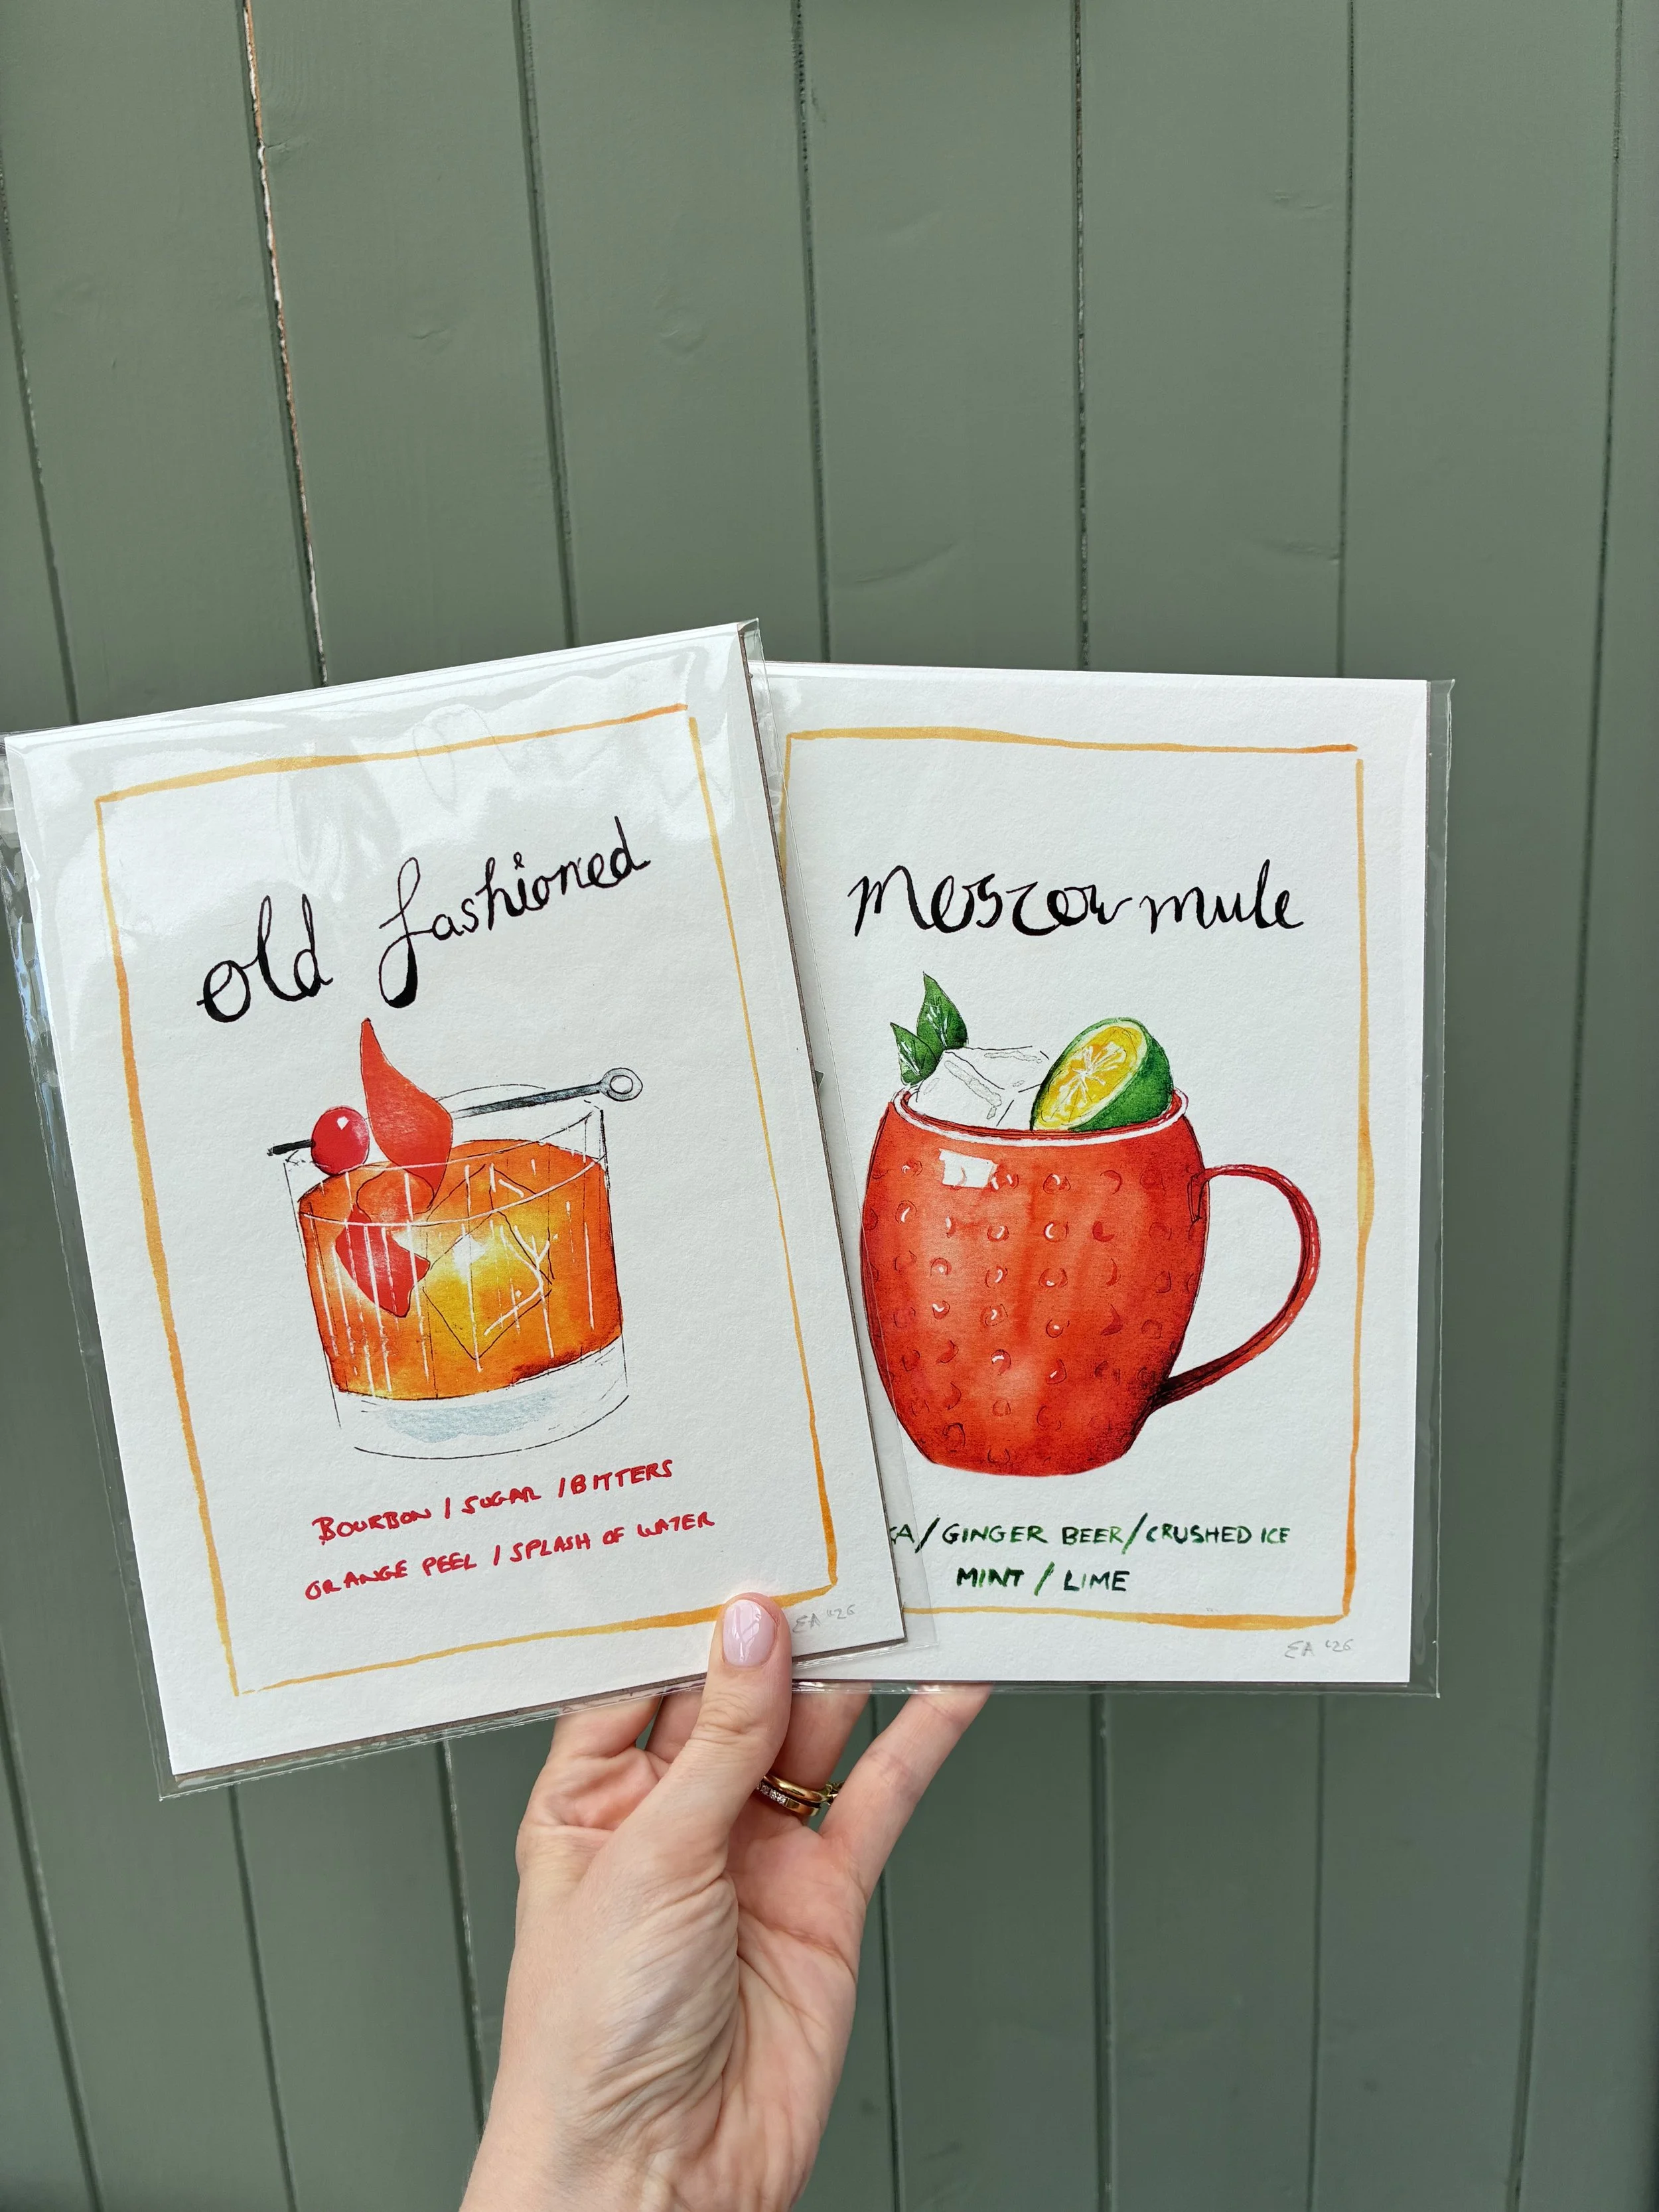 old fashioned
BOURBON / SUGAR / BITTERS
ORANGE PEEL / SPLASH OF WATER
EA '26
moscow mule
KA / GINGER BEER / CRUSHED ICE
MINT / LIME
EA '26